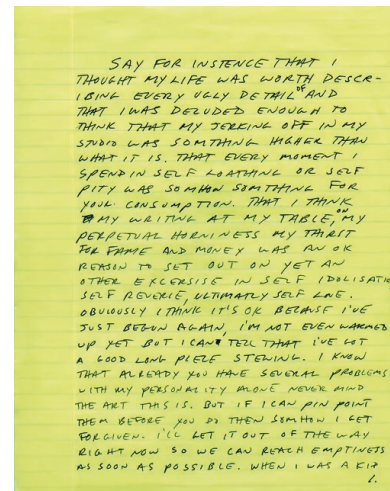 SAY FOR INSTENCE THAT I
THOUGHT MY LIFE WAS WORTH DESCR-
IBING EVERY UGLY DETAIL OF AND
THAT I WAS DELUDED ENOUGH TO
THINK THAT MY JERKING OFF IN MY
STUDIO WAS SOMTHING HIGHER THAN
WHAT IT IS. THAT EVERY MOMENT I
SPEND IN SELF LOATHING OR SELF
PITY WAS SOMHOW SOMTHING FOR
YOUR CONSUMPTION. THAT I THINK
MY WRITING AT MY TABLE, OR
PERPETUAL HORNINESS MY THIRST
FOR FAME AND MONEY WAS AN OK
REASON TO SET OUT ON YET AN
OTHER EXCERSISE IN SELF IDOLISATIO
SELF REVERIE, ULTIMATLY SELF LOVE.
OBVIOUSLY I THINK IT'S OK BECAUSE I'VE
JUST BEGUN AGAIN, I'M NOT EVEN WARMED
UP YET BUT I CAN TELL THAT I'VE GOT
A GOOD LONG PIECE STEWING. I KNOW
THAT ALREADY YOU HAVE SEVERAL PROBLEMS
WITH MY PERSONALITY ALONE NEVER MIND
THE ART THIS IS. BUT IF I CAN PIN POINT
THEM BEFORE YOU DO THEN SOMHOW I GET
FORGIVEN. I'LL GET IT OUT OF THE WAY
RIGHT NOW SO WE CAN REACH EMPTINESS
AS SOON AS POSSIBLE. WHEN I WAS A KID
1.